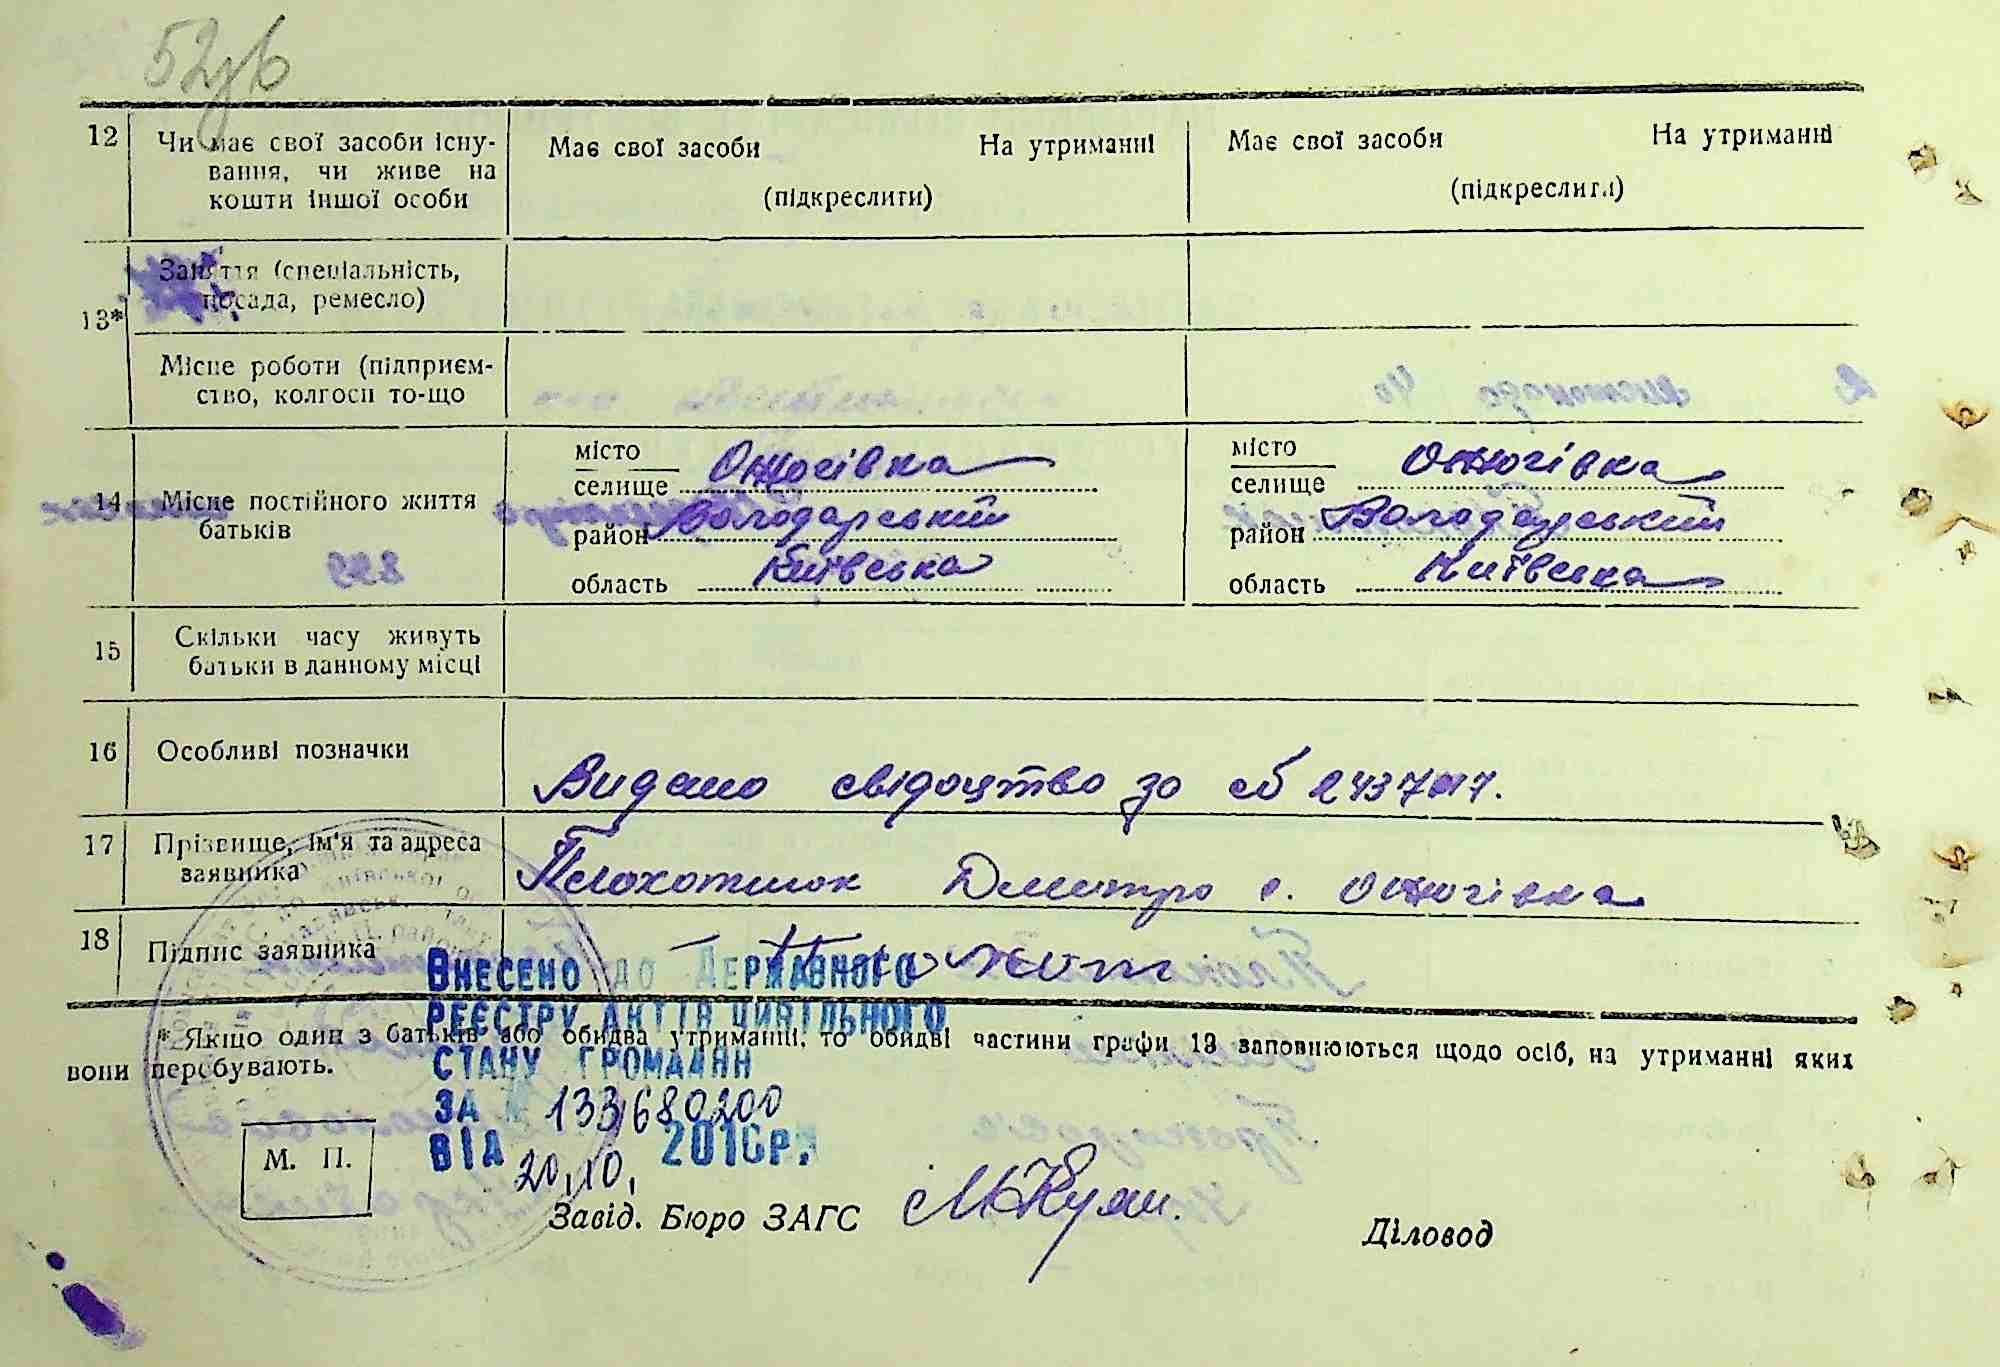 12 Чи має свої засоби існу-
вання, чи живе на
кошти іншої особи
Має свої засоби На утриманні
(підкреслити)
Має свої засоби На утриманні
(підкреслити)
13*
Заняття (спеціальність,
посада, ремесло)
Місце роботи (підприєм-
ство, колгосп то-що
14 Місце постійного життя
батьків
місто
селище Ожогівка
район Володарський
область Київська
місто
селище Ожогівка
район Володарський
область Київська
15 Скільки часу живуть
батьки в данному місці
16 Особливі позначки
Видано свідоцтво за
17 Прізвище, ім'я та адреса
заявника
Плохотнюк Дмитро с. Ожогівка
18 Підпис заявника
ВНЕСЕНО ДО ДЕРЖАВНОГО
РЕЄСТРУ АКТІВ ЦИВІЛЬНОГО
* Якщо один з батьків або обидва утриманні, то обидві частини графи 13 заповнюються щодо осіб, на утриманні яких
вони перебувають.
СТАНУ ГРОМАДЯН
ЗА № 133680200
ВІД 20.10. 2016р.
М. П.
Завід. Бюро ЗАГС
Діловод